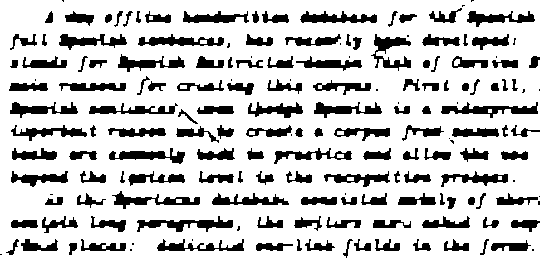 A new offline handwritten database for the Spanish
full Spanish sentences, has recently been developed:
stands for Spanish Restricted-domain Task of Cursive S
main reasons for creating this corpus. First of all,
Spanish sentences, even though Spanish is a widespread
important reason was to create a corpus from semantic-
tasks are commonly used in practice and allow the use
beyond the lexicon level in the recognition process.
As the Spartacus database consisted mainly of shor
contain long paragraphs, the writers were asked to cop
fixed places: dedicated one-line fields in the forms.